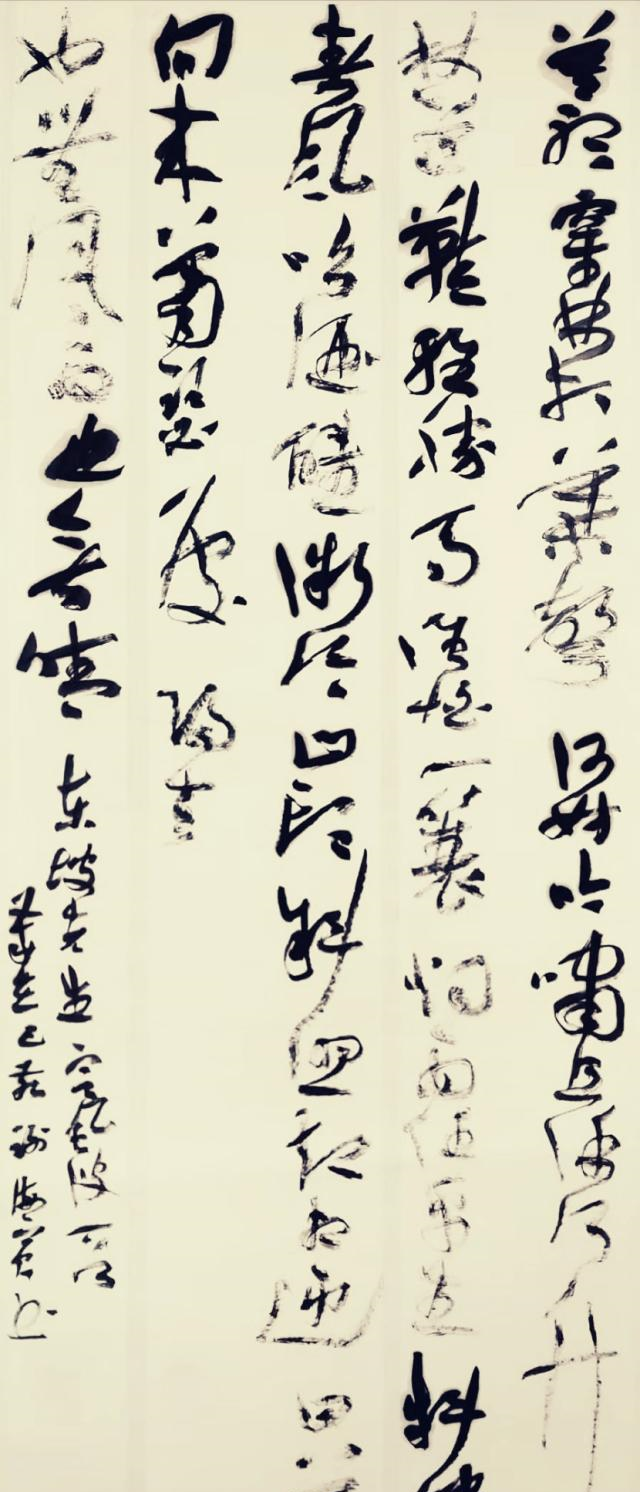 莫聽穿林打葉聲何妨吟嘯且徐行竹
杖芒鞋輕勝馬誰怕一蓑烟雨任平生料峭
春風吹酒醒微冷山頭斜照却相迎回首
向来蕭瑟處歸去
也無風雨也無晴东坡先生定風波
歲在乙巳